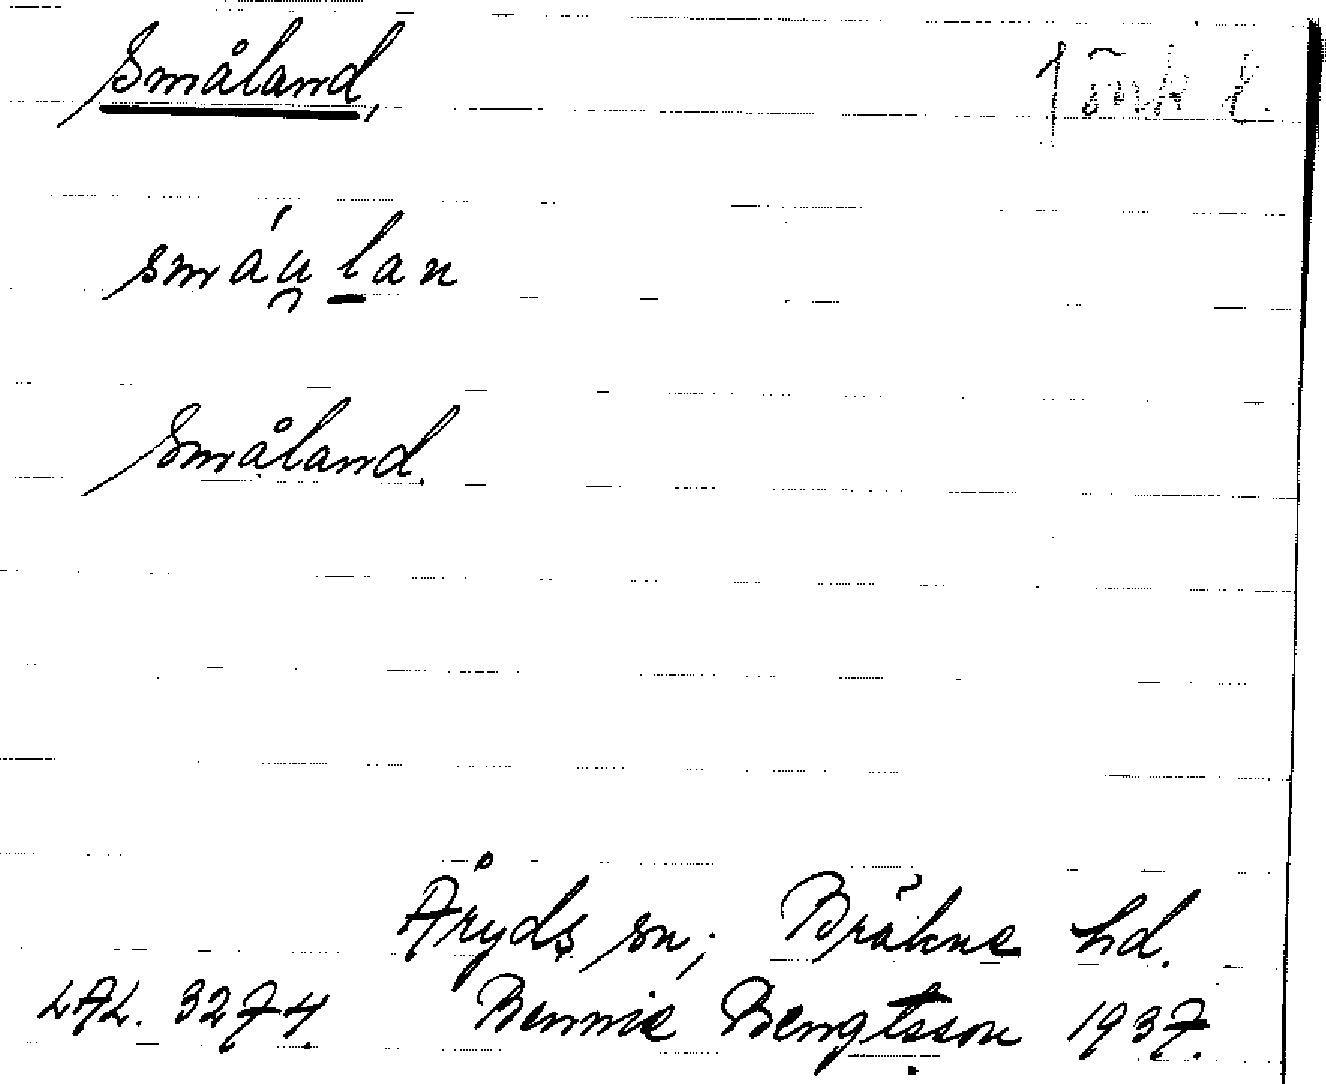 Småland,
smáu̯lan
Småland.
Åryds sn; Bräkne hd.
LAL. 3274. Bennie Bengtsson 1937.